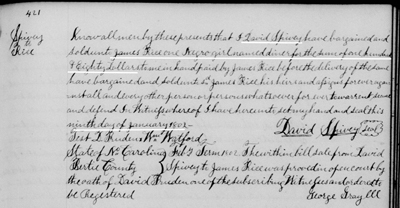 421
Spivey
to
Rice
Know all men by these presents that I David Spivey have bargained and
sold unto James Rice one Negro girl named diner for the sum of one hundred
& Eighty Dollars to me in hand paid by James Rice before the delivery of the same
have bargained and sold unto Sd James Rice his heirs and assigns forever again
inst all and every other person or persons whatsoever for ever to warrant
and defend In Witness whereof I have here unto set my hand and seal this
ninth day of January 1802
David Spivey Seal
Test D Pruden Wm Watford
State of No Carolina Feb 2 Term 1802 The within bill sale from David
Bertie County Spivey to James Rice was proved in open court by
the oath of David Pruden one of the subscribing Witnesses and ordered to
be Registered
George Gray Clk